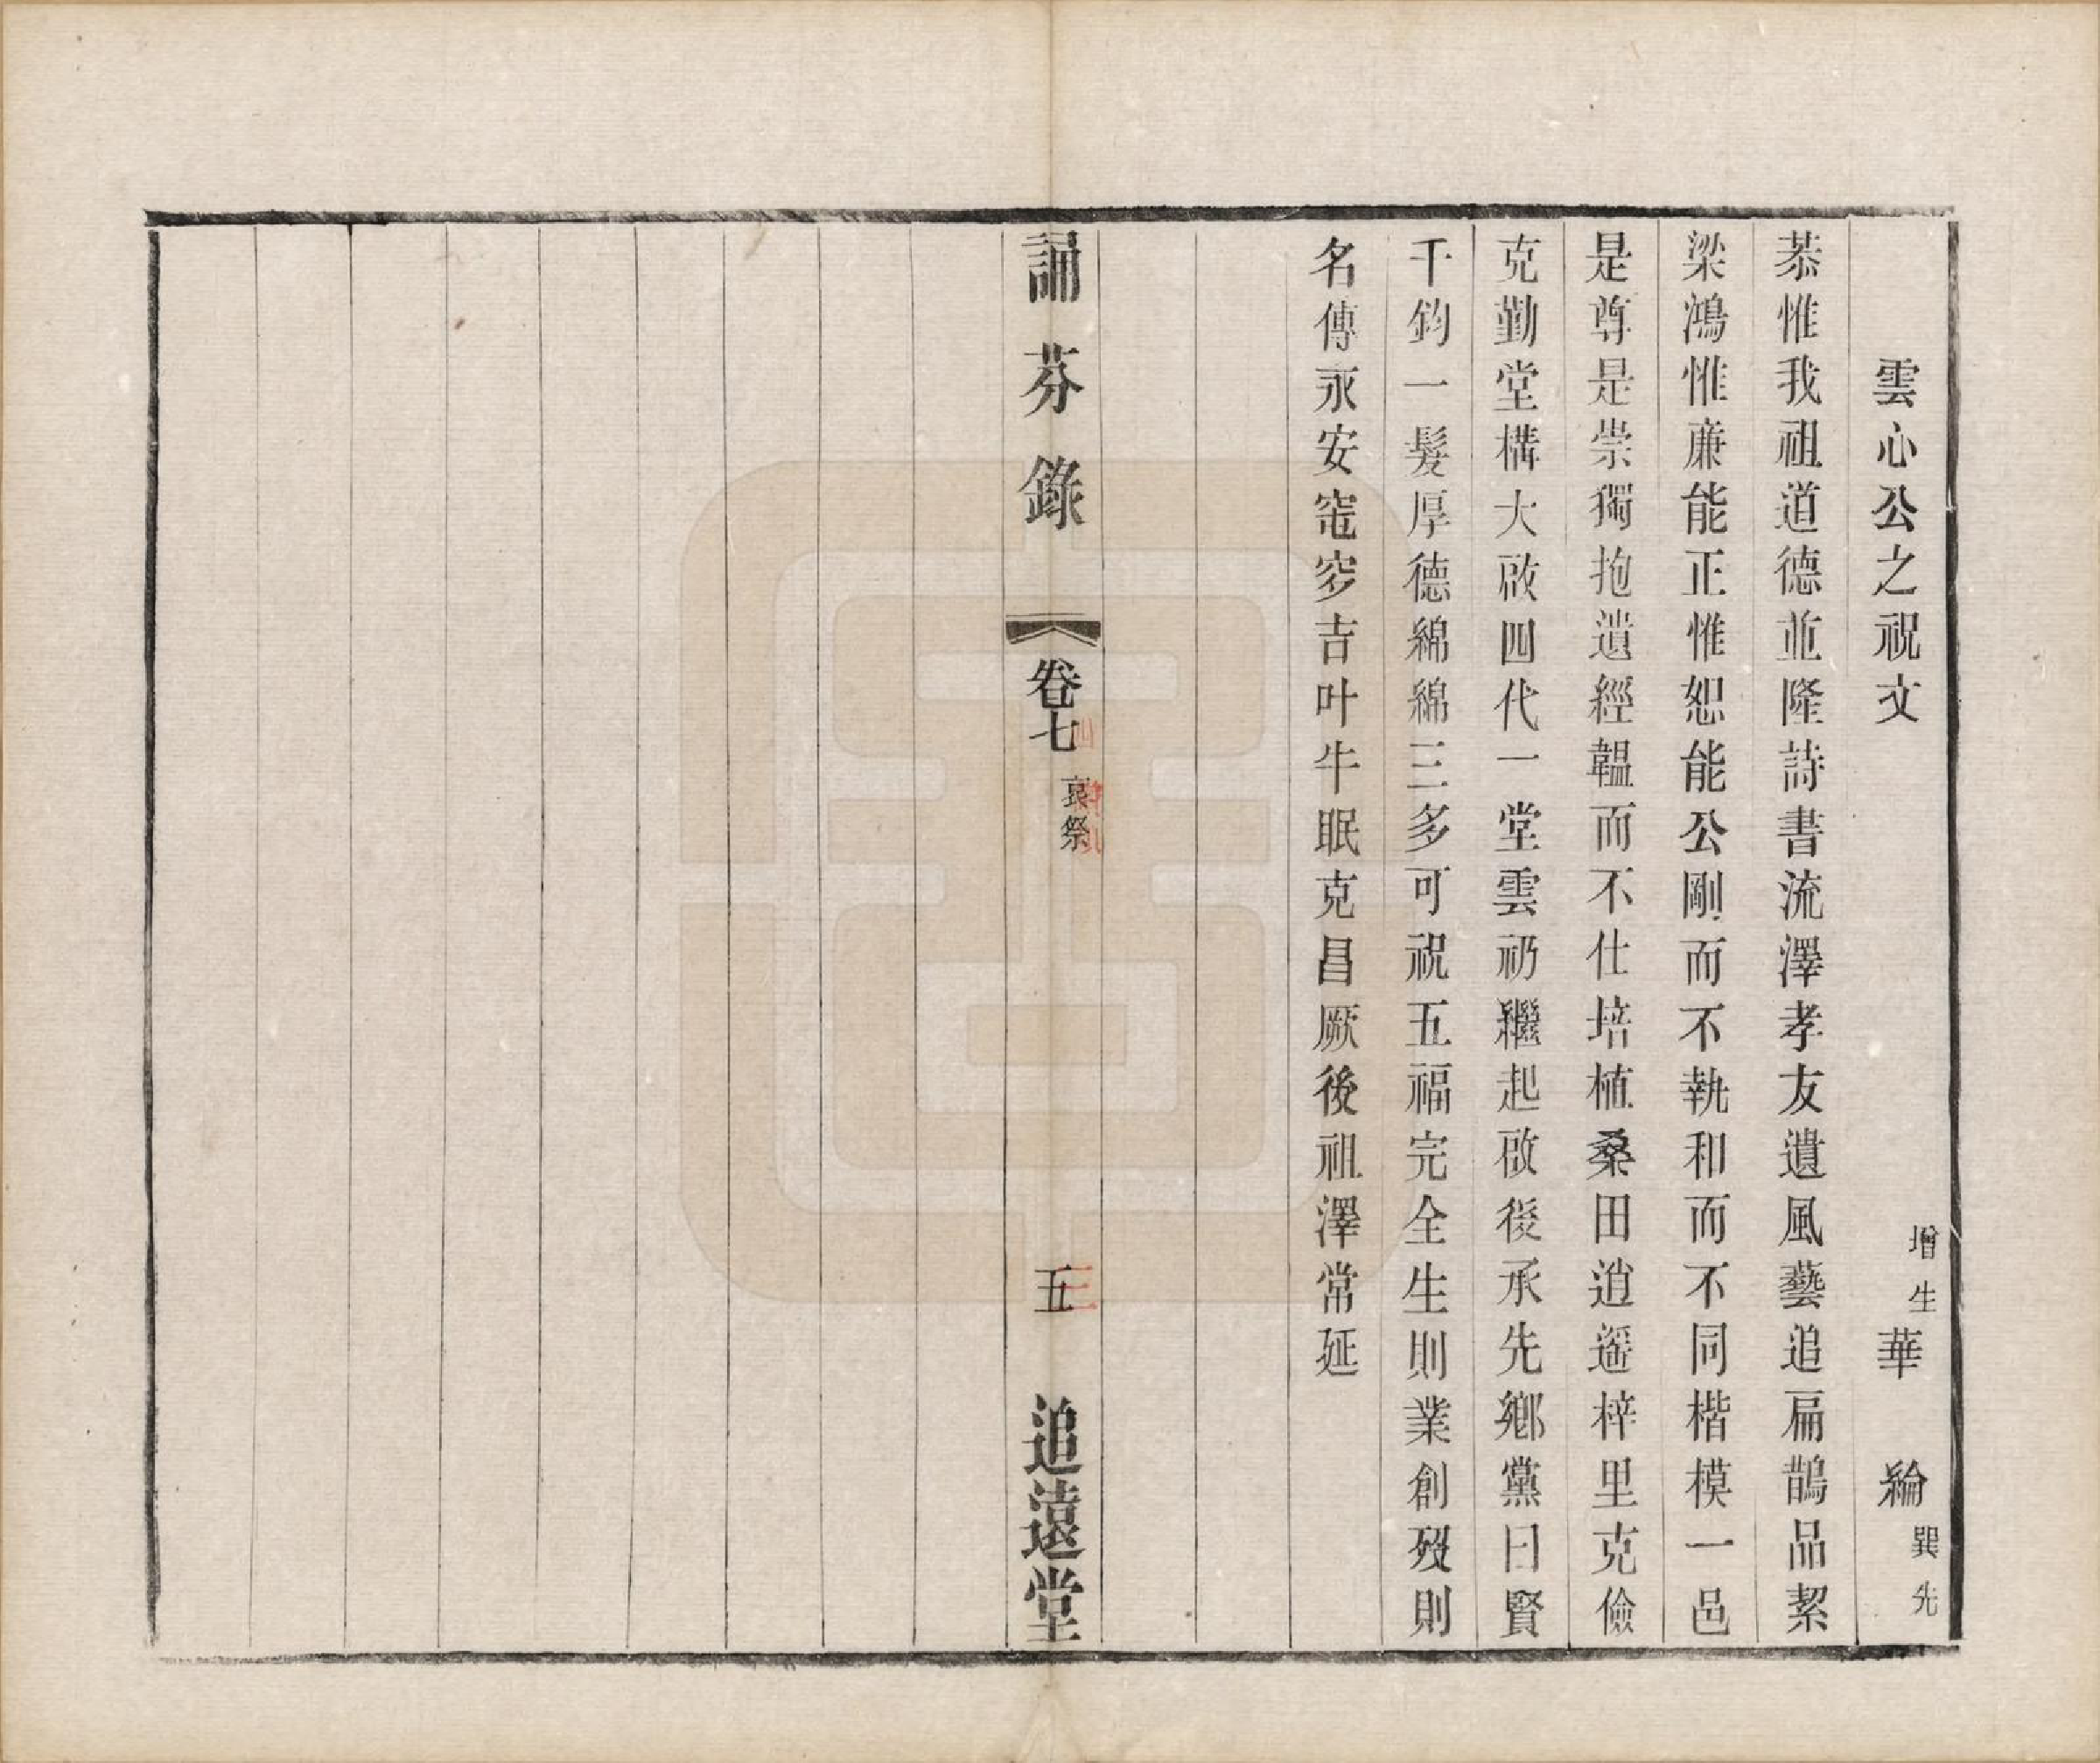 雲心公之祝文　增生華　綸巽先
恭惟我祖道德並隆詩書流澤孝友遺風藝追扁鵲品絜
梁鴻惟廉能正惟恕能公剛而不執和而不同楷模一邑
是尊是崇獨抱遺經韞而不仕培植桑田逍遙梓里克儉
克勤堂構大啟四代一堂雲礽繼起啟後承先鄉黨曰賢
千鈞一髮厚德綿綿三多可祝五福完全生則業創歿則
名傳永安窀穸吉叶牛眠克昌厥後祖澤常延
誦芬錄　卷七　哀祭　五　追遠堂